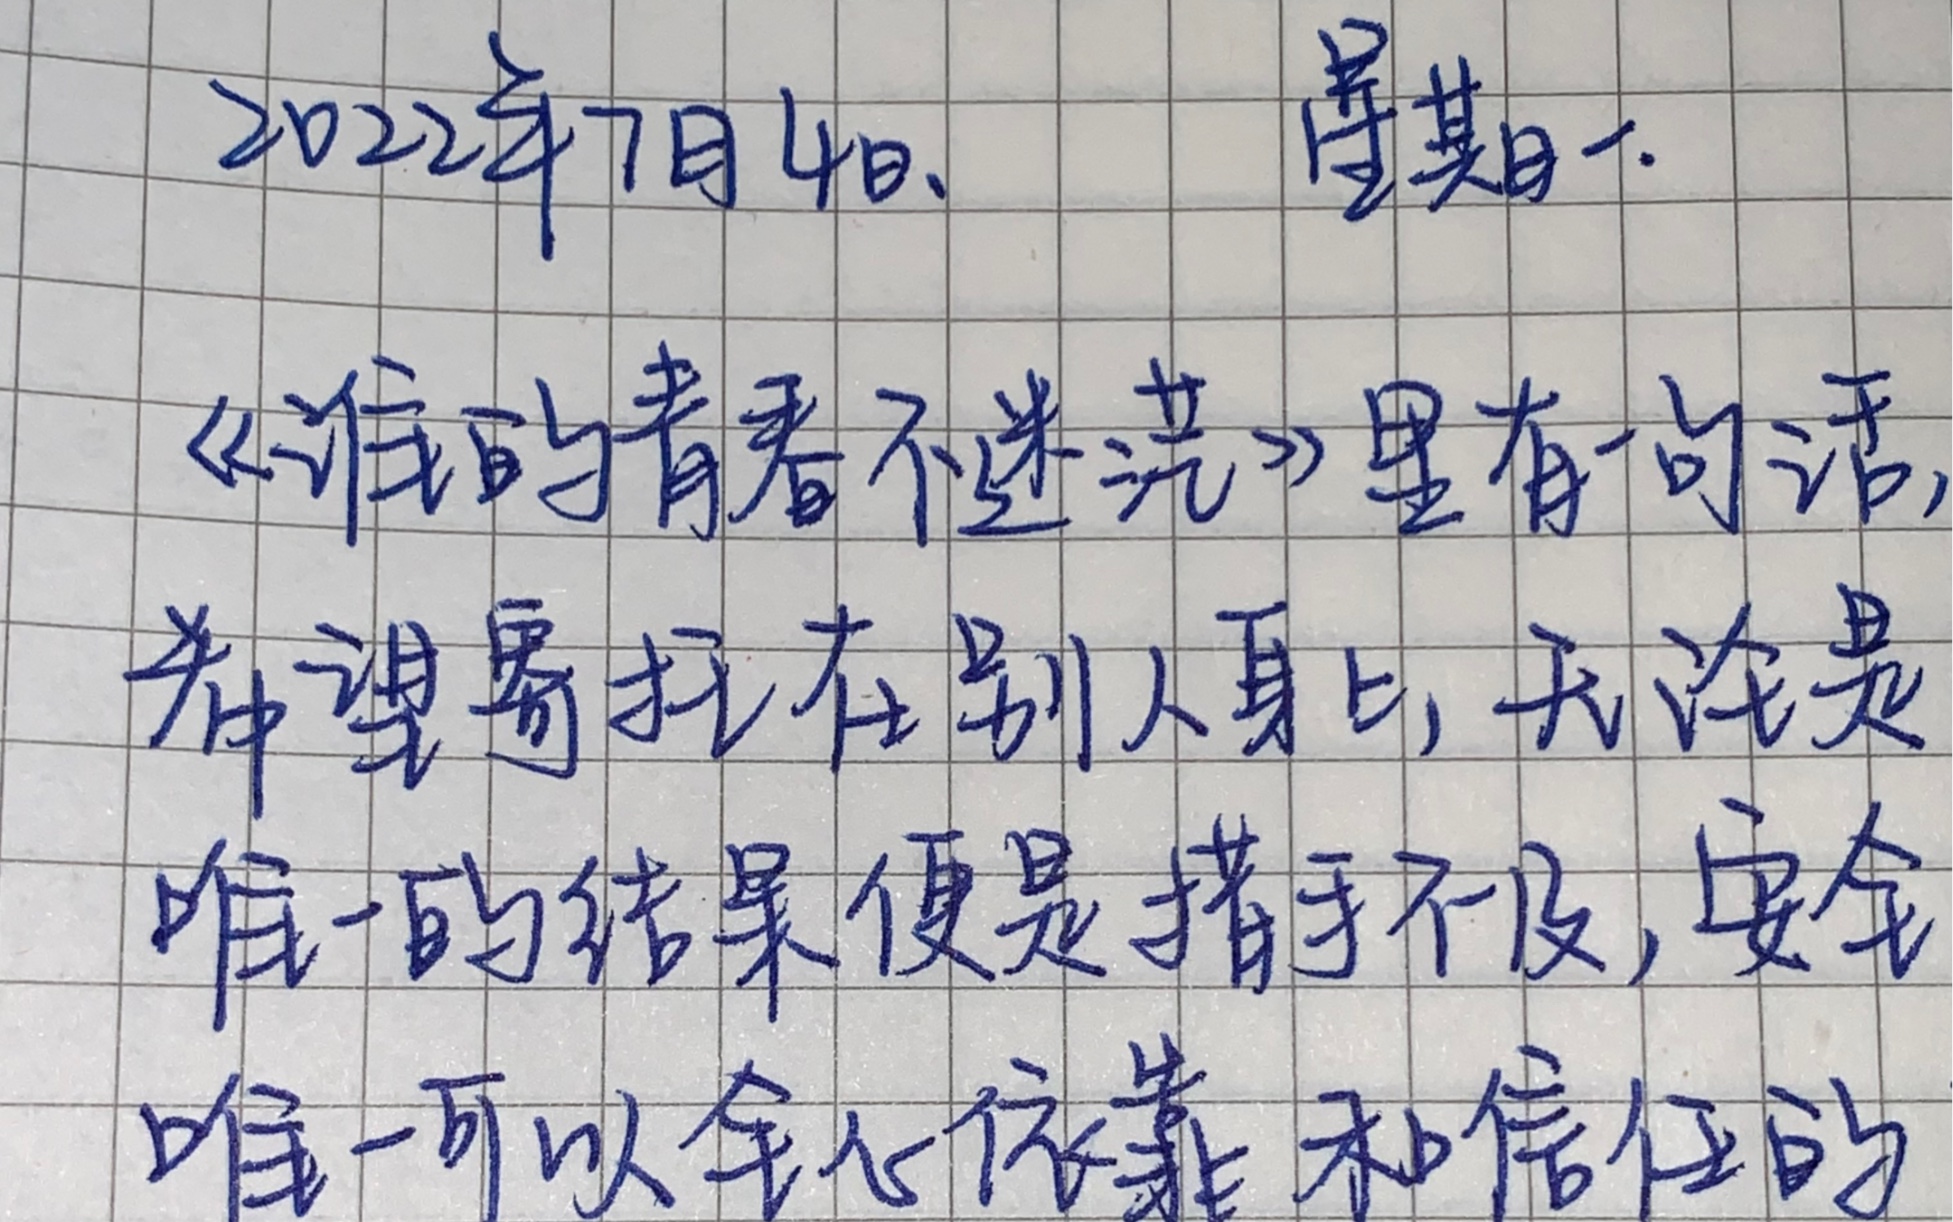 2022年7月4日、 星期一.
《谁的青春不迷茫》里有一句话,
希望寄托在别人身上,无论是
唯一的结果便是措手不及,安全
唯一可以全心依靠和信任的